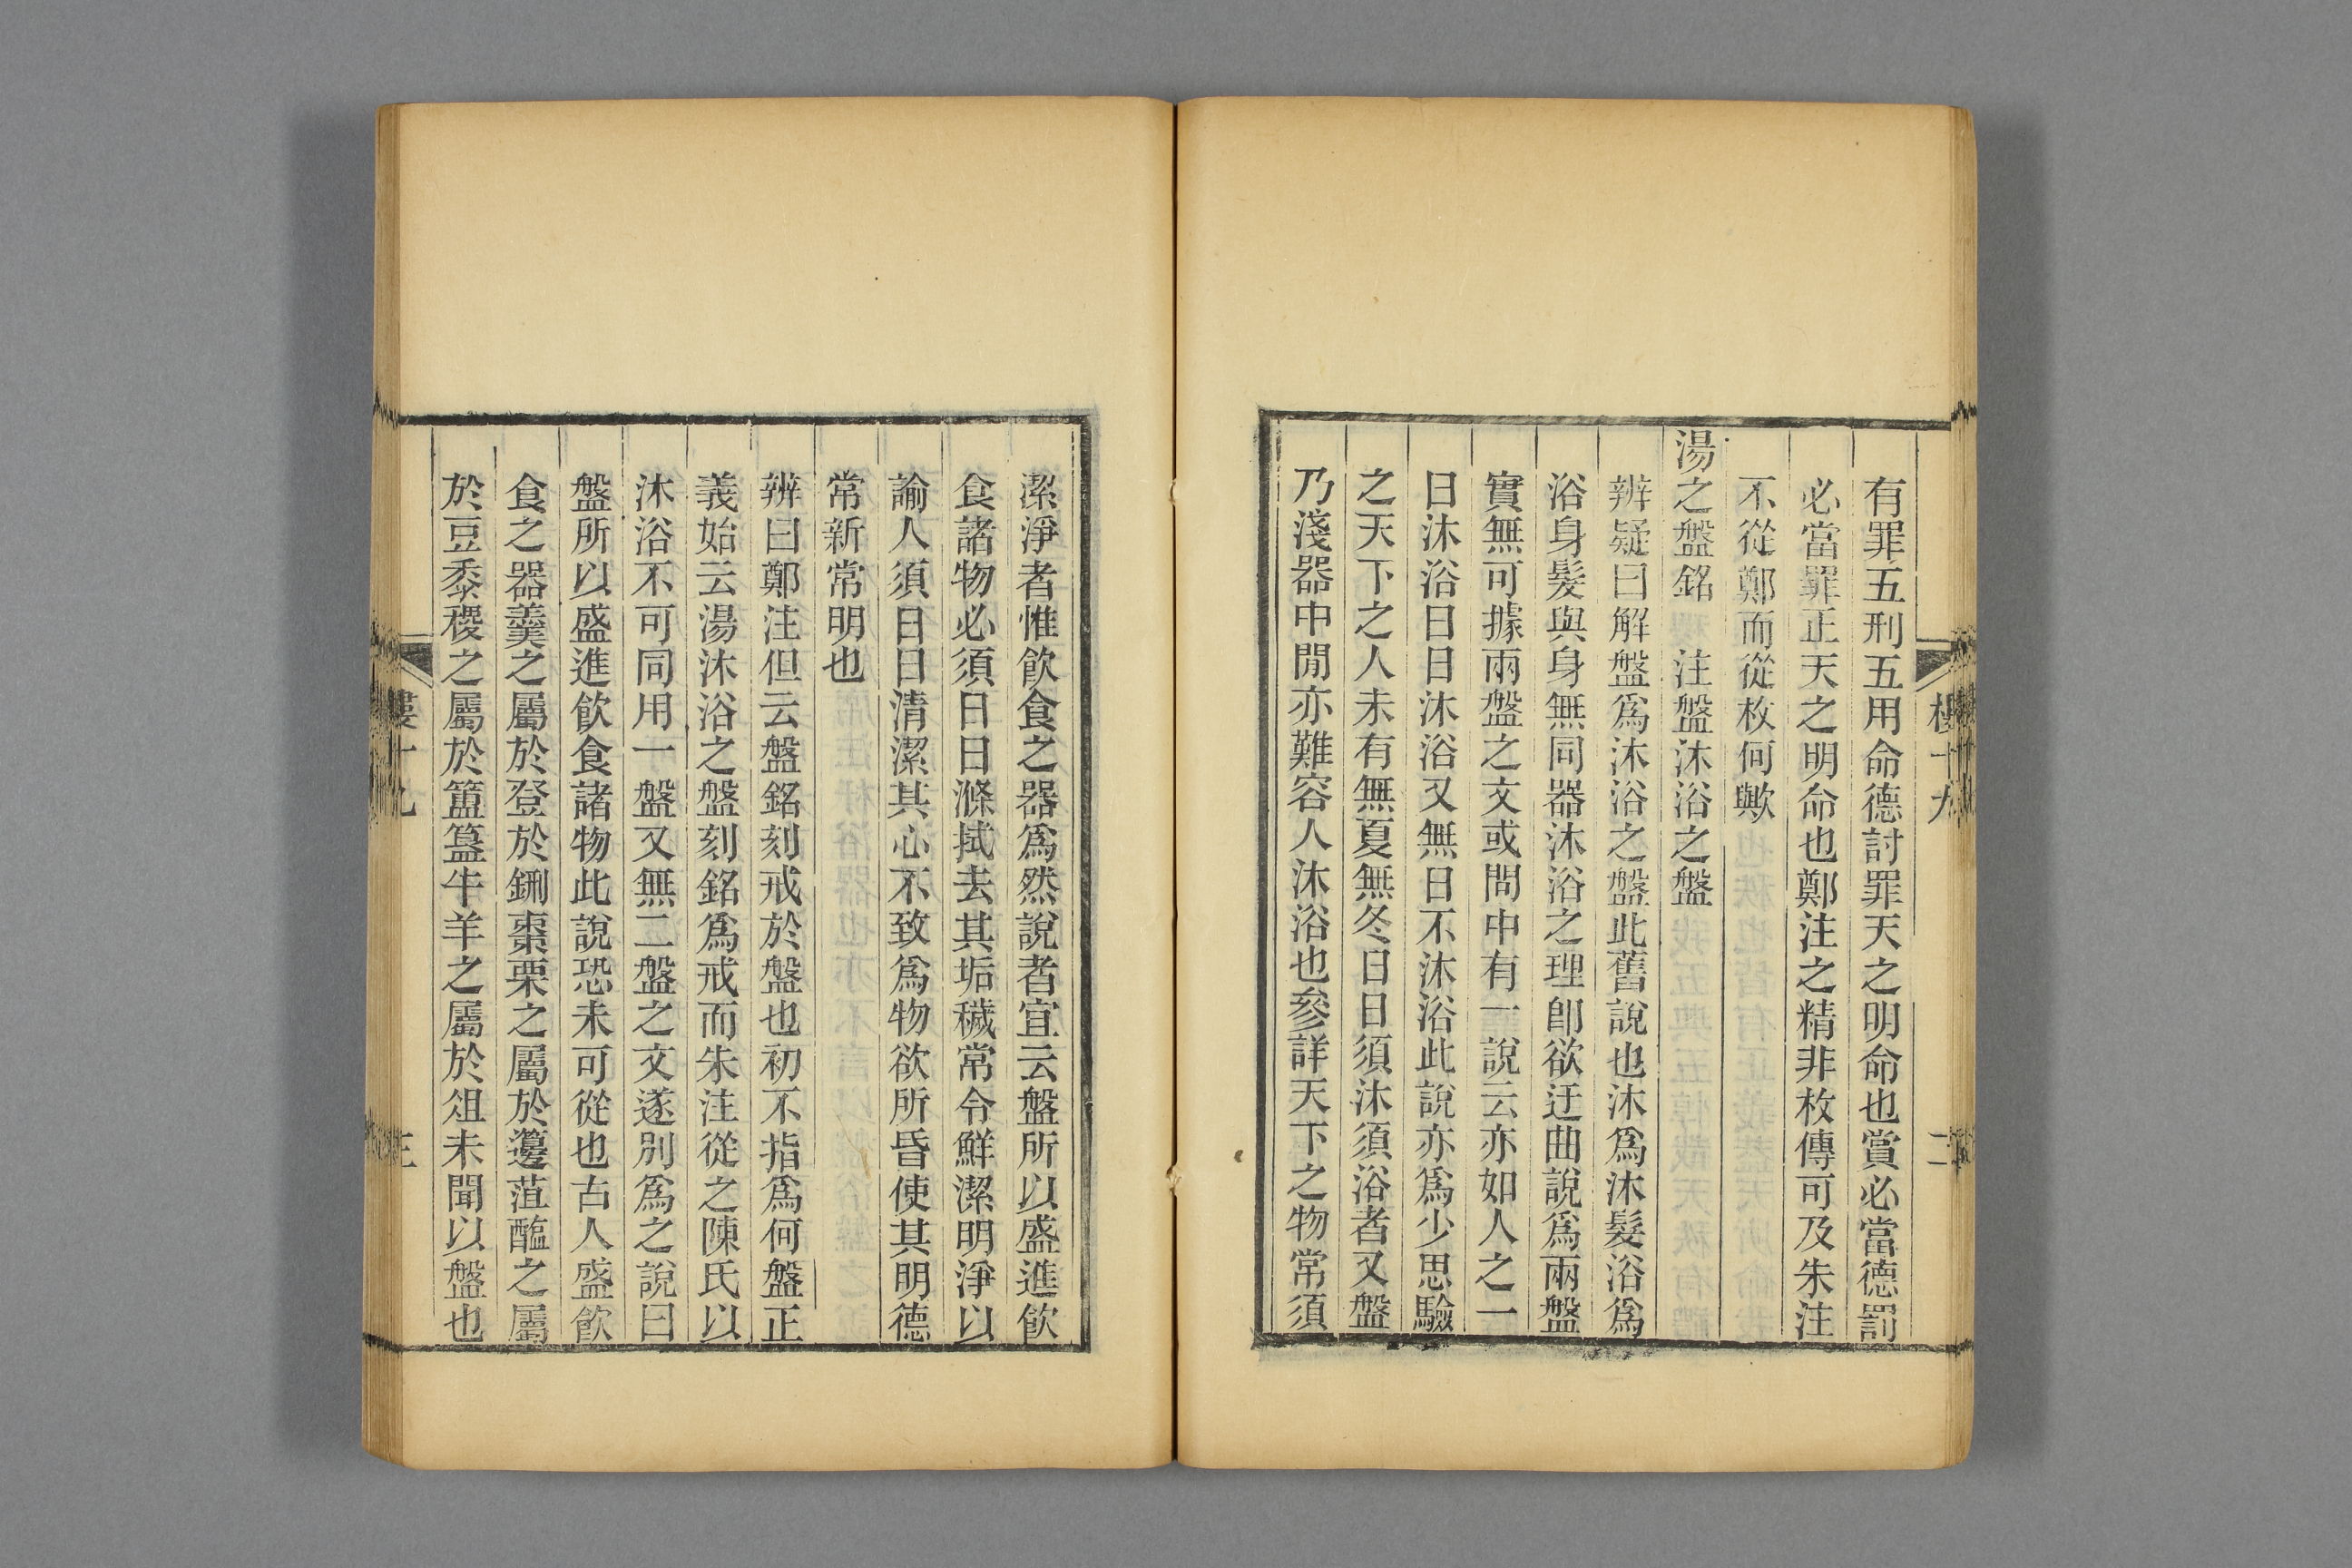 有罪五刑五用命德討罪天之明命也賞必當德罰
必當罪正天之明命也鄭注之精非枚傳可及朱注
不從鄭而從枚何歟
湯之盤銘 注盤沐浴之盤
辨疑曰解盤爲沐浴之盤此舊說也沐爲沐髮浴爲
浴身髮與身無同器沐浴之理卽欲迂曲說爲兩盤
實無可據兩盤之文或問中有一說云亦如人之一
日沐浴日日沐浴又無日不沐浴此說亦爲少思驗
之天下之人未有無夏無冬日日須沐須浴者又盤
乃淺器中閒亦難容人沐浴也參詳天下之物常須
潔淨者惟飲食之器爲然說者宜云盤所以盛進飲
食諸物必須日日滌拭去其垢穢常令鮮潔明淨以
諭人須日日清潔其心不致爲物欲所昏使其明德
常新常明也
辨曰鄭注但云盤銘刻戒於盤也初不指爲何盤正
義始云湯沐浴之盤刻銘爲戒而朱注從之陳氏以
沐浴不可同用一盤又無二盤之文遂別爲之說曰
盤所以盛進飲食諸物此說恐未可從也古人盛飲
食之器羹之屬於登於鉶棗栗之屬於籩菹醢之屬
於豆黍稷之屬於簠簋牛羊之屬於俎未聞以盤也